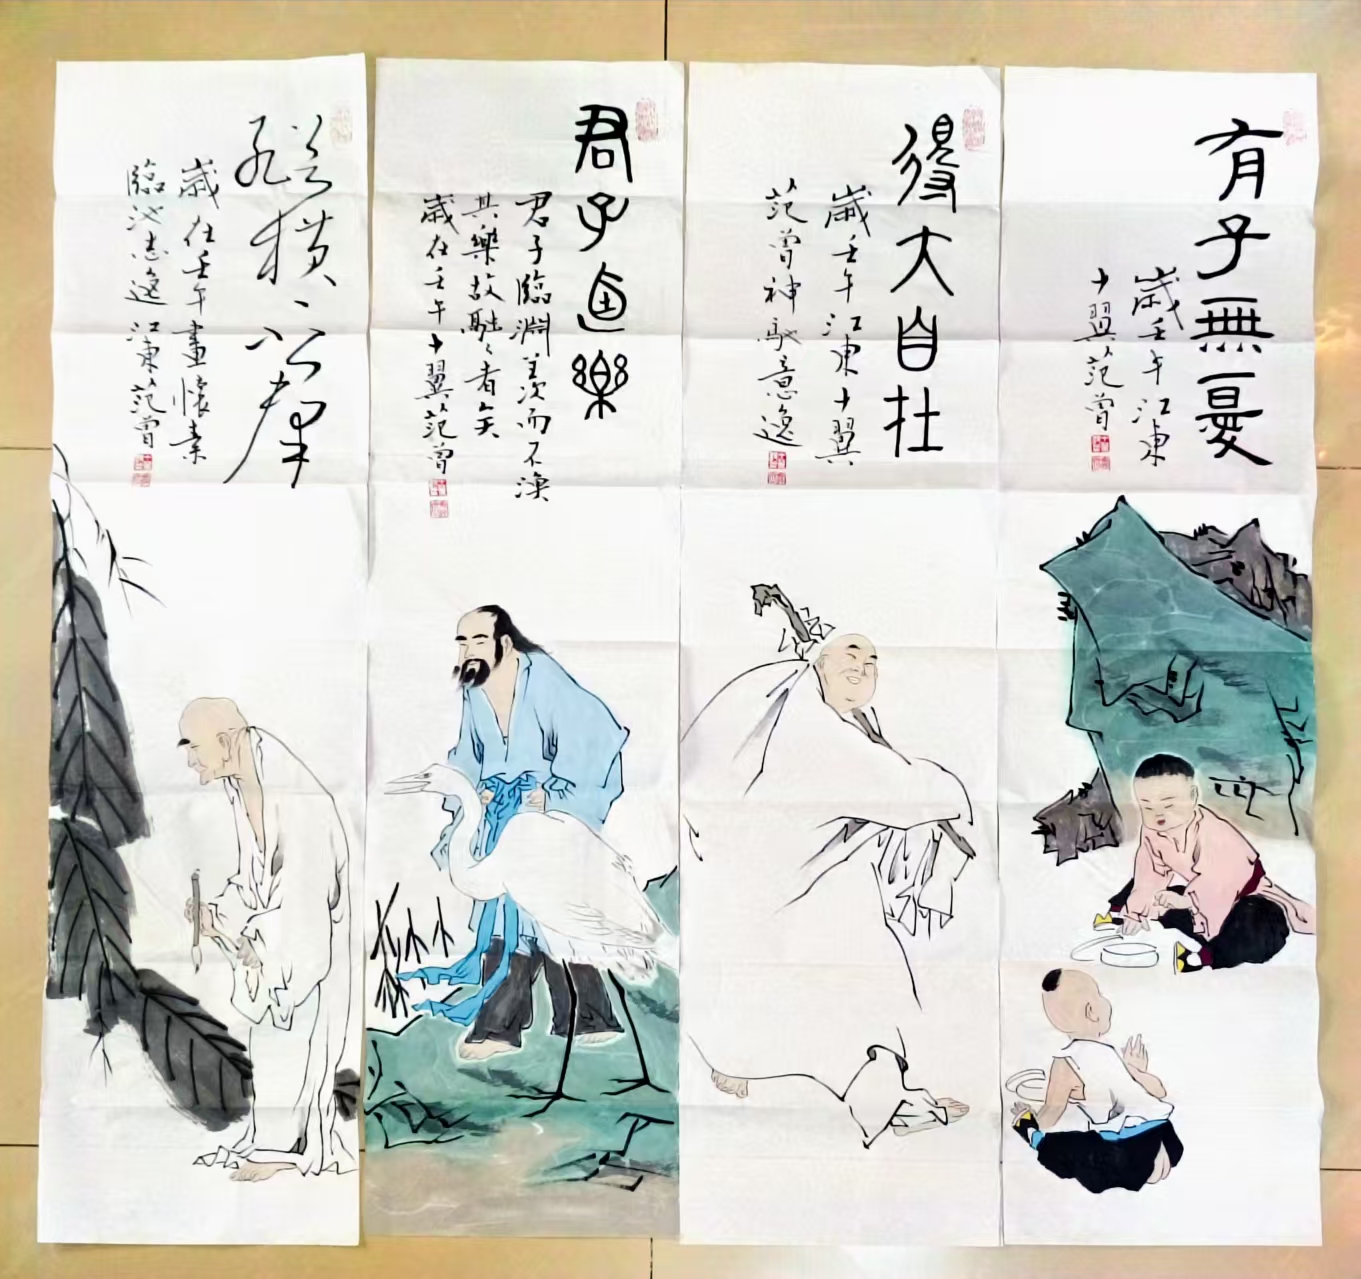 有子無憂
歲壬午江東
十翼范曾
得大自在
歲壬午江東十翼
范曾神馭意逸
君子適樂
君子臨淵羨次而不漁
其樂故融〻者矣
歲在壬午十翼范曾
縱橫〻公孫
歲在壬午畫懷素
臨池志逸江東范曾